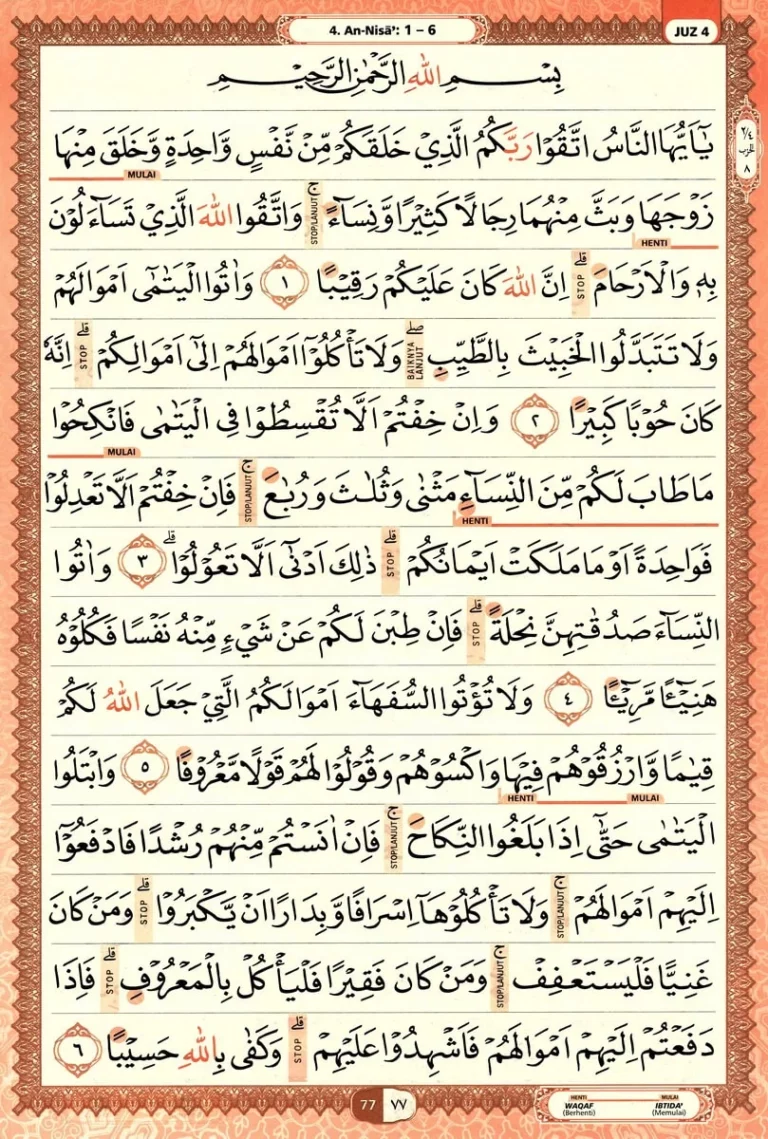 4. An-Nisā': 1 – 6
JUZ 4
بِسْمِ اللّٰهِ الرَّحْمٰنِ الرَّحِيْمِ
٢/٤ الحزب ٨
يٰٓاَيُّهَا النَّاسُ اتَّقُوْا رَبَّكُمُ الَّذِيْ خَلَقَكُمْ مِّنْ نَّفْسٍ وَّاحِدَةٍ وَّخَلَقَ مِنْهَا
MULAI
زَوْجَهَا وَبَثَّ مِنْهُمَا رِجَالًا كَثِيْرًا وَّنِسَاۤءً ۚ STOP/LANJUT وَاتَّقُوا اللّٰهَ الَّذِيْ تَسَاۤءَلُوْنَ
HENTI
بِهٖ وَالْاَرْحَامَ ۗ STOP اِنَّ اللّٰهَ كَانَ عَلَيْكُمْ رَقِيْبًا ١ وَاٰتُوا الْيَتٰمٰٓى اَمْوَالَهُمْ
وَلَا تَتَبَدَّلُوا الْخَبِيْثَ بِالطَّيِّبِ ۖ BAIKNYA LANJUT وَلَا تَأْكُلُوْٓا اَمْوَالَهُمْ اِلٰٓى اَمْوَالِكُمْ ۗ STOP اِنَّهٗ
كَانَ حُوْبًا كَبِيْرًا ٢ وَاِنْ خِفْتُمْ اَلَّا تُقْسِطُوْا فِى الْيَتٰمٰى فَانْكِحُوْا
MULAI
مَا طَابَ لَكُمْ مِّنَ النِّسَاۤءِ مَثْنٰى وَثُلٰثَ وَرُبٰعَ ۚ STOP/LANJUT فَاِنْ خِفْتُمْ اَلَّا تَعْدِلُوْا
HENTI
فَوَاحِدَةً اَوْ مَا مَلَكَتْ اَيْمَانُكُمْ ۗ STOP ذٰلِكَ اَدْنٰٓى اَلَّا تَعُوْلُوْا ۗ ٣ وَاٰتُوا
النِّسَاۤءَ صَدُقٰتِهِنَّ نِحْلَةً ۗ STOP فَاِنْ طِبْنَ لَكُمْ عَنْ شَيْءٍ مِّنْهُ نَفْسًا فَكُلُوْهُ
هَنِيْۤـًٔا مَّرِيْۤـًٔا ٤ وَلَا تُؤْتُوا السُّفَهَاۤءَ اَمْوَالَكُمُ الَّتِيْ جَعَلَ اللّٰهُ لَكُمْ
قِيٰمًا وَّارْزُقُوْهُمْ فِيْهَا وَاكْسُوْهُمْ وَقُوْلُوْا لَهُمْ قَوْلًا مَّعْرُوْفًا ٥ وَابْتَلُوا
MULAI HENTI
الْيَتٰمٰى حَتّٰىٓ اِذَا بَلَغُوا النِّكَاحَ ۚ STOP/LANJUT فَاِنْ اٰنَسْتُمْ مِّنْهُمْ رُشْدًا فَادْفَعُوْٓا
اِلَيْهِمْ اَمْوَالَهُمْ ۚ STOP/LANJUT وَلَا تَأْكُلُوْهَآ اِسْرَافًا وَّبِدَارًا اَنْ يَّكْبَرُوْا ۗ STOP وَمَنْ كَانَ
غَنِيًّا فَلْيَسْتَعْفِفْ ۚ STOP/LANJUT وَمَنْ كَانَ فَقِيْرًا فَلْيَأْكُلْ بِالْمَعْرُوْفِ ۗ STOP فَاِذَا
دَفَعْتُمْ اِلَيْهِمْ اَمْوَالَهُمْ فَاَشْهِدُوْا عَلَيْهِمْ ۗ STOP وَكَفٰى بِاللّٰهِ حَسِيْبًا ٦
77 ٧٧
HENTI MULAI
WAQAF IBTIDA'
(Berhenti) (Memulai)